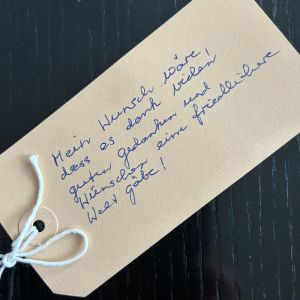 Mein Wunsch wäre,
dass es dank vielen
guten gedanken und
Wünschen eine friedlichere
Welt gäbe!